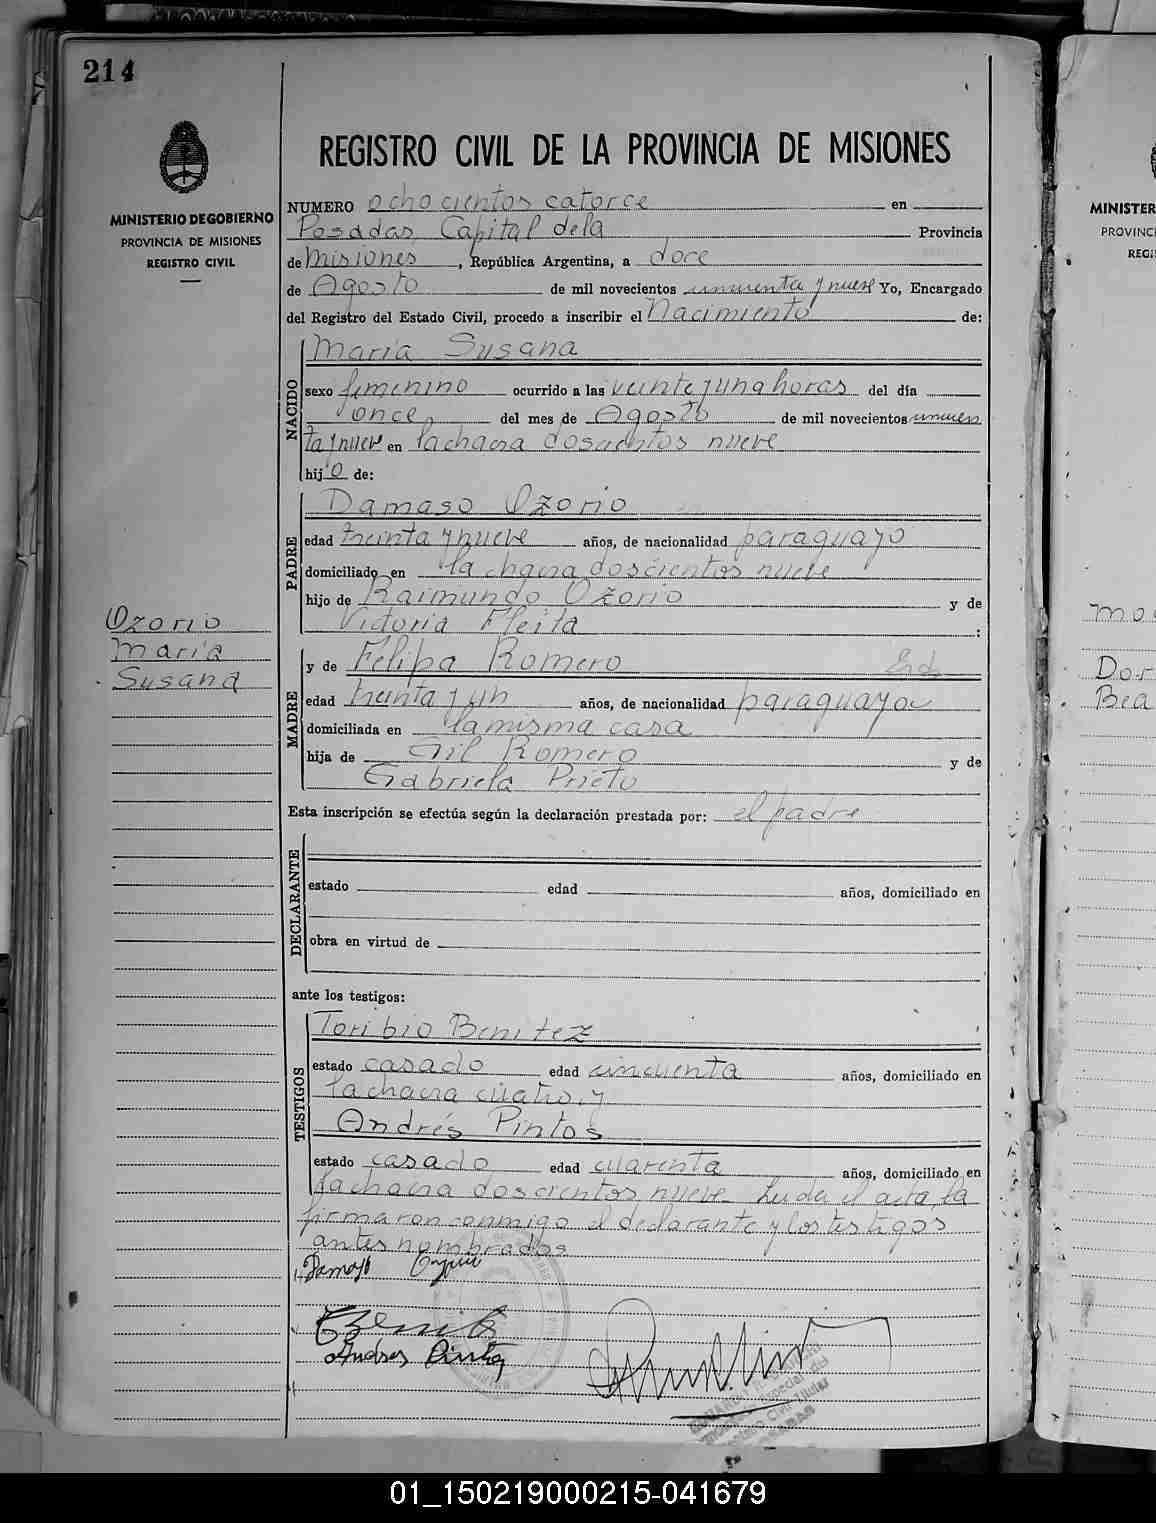 214
REGISTRO CIVIL DE LA PROVINCIA DE MISIONES
MINISTERIO DE GOBIERNO
PROVINCIA DE MISIONES
REGISTRO CIVIL
NUMERO ochocientos catorce en
Posadas, Capital dela Provincia
de Misiones, República Argentina, a doce
de Agosto de mil novecientos cincuenta y nueve Yo, Encargado
del Registro del Estado Civil, procedo a inscribir el Nacimiento de:
NACIDO
Maria Susana
sexo femenino ocurrido a las veinte y una horas del día
once del mes de Agosto de mil novecientos cincuen
ta y nueve en la chacra doscientos nueve
hijo de:
PADRE
Damaso Ozorio
edad treinta y nueve años, de nacionalidad paraguayo
domiciliado en la chacra doscientos nueve
hijo de Raimundo Ozorio y de
Victoria Fleita :
Ozorio
Maria
Susana
MADRE
y de Felipa Romero
edad treinta y un años, de nacionalidad paraguaya
domiciliada en la misma casa
hija de Gil Romero y de
Gabriela Prieto
Esta inscripción se efectúa según la declaración prestada por: el padre
DECLARANTE
estado edad años, domiciliado en
obra en virtud de
ante los testigos:
TESTIGOS
Toribio Benitez
estado casado edad cincuenta años, domiciliado en
la chacra cuatro, y
Andrés Pintos
estado casado edad cuarenta años, domiciliado en
la chacra doscientos nueve. Leida el acta, la
firmaron conmigo el declarante y los testigos
antes nombrados
Andres Pintos
MINISTER
PROVINC
REGI
Dor
Bea
01_150219000215-041679